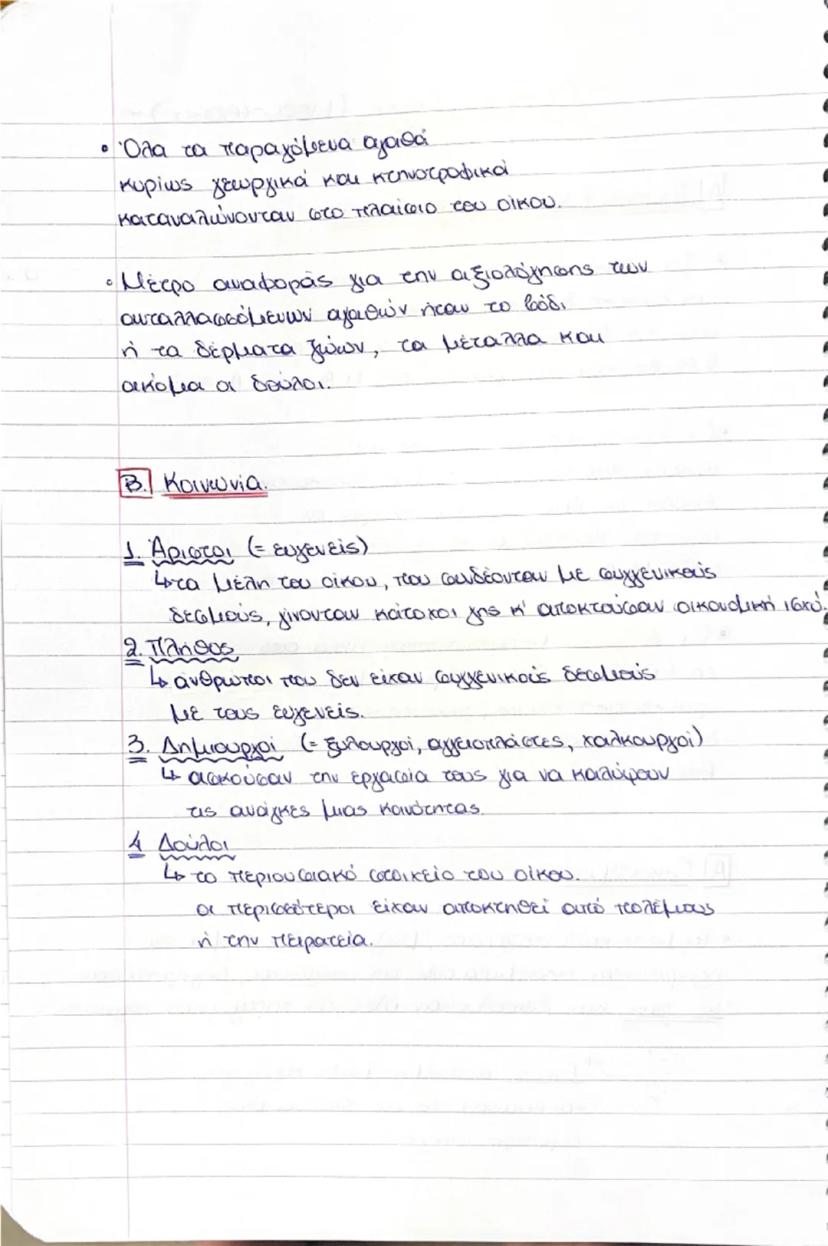 • Όλα τα παραγόμενα αγαθά
κυρίως γεωργικά και κτηνοτροφικά
καταναλώνονταν στο πλαίσιο του οίκου.
• Μέτρο αναφοράς για την αξιολόγησης των
ανταλλασσόμενων αγαθών ήταν το βόδι
ή τα δέρματα ζώων, τα μέταλλα και
ακόμα οι δούλοι.
Β. Κοινωνία.
1. Άριστοι (= ευγενείς)
↳ τα μέλη του οίκου, που συνδέονταν με συγγενικούς
δεσμούς, γίνονταν κάτοχοι γης κ' αποκτούσαν οικονομική ισχύ.
2. Πλήθος
↳ άνθρωποι που δεν είχαν συγγενικούς δεσμούς
με τους ευγενείς.
3. Δημιουργοί (= ξυλουργοί, αγγειοπλάστες, χαλκουργοί)
↳ ασκούσαν την εργασία τους για να καλύψουν
τις ανάγκες μιας κοινότητας.
4 Δούλοι
↳ το περιουσιακό στοιχείο του οίκου.
οι περισσότεροι είχαν αποκτηθεί από πολέμους
ή την πειρατεία.